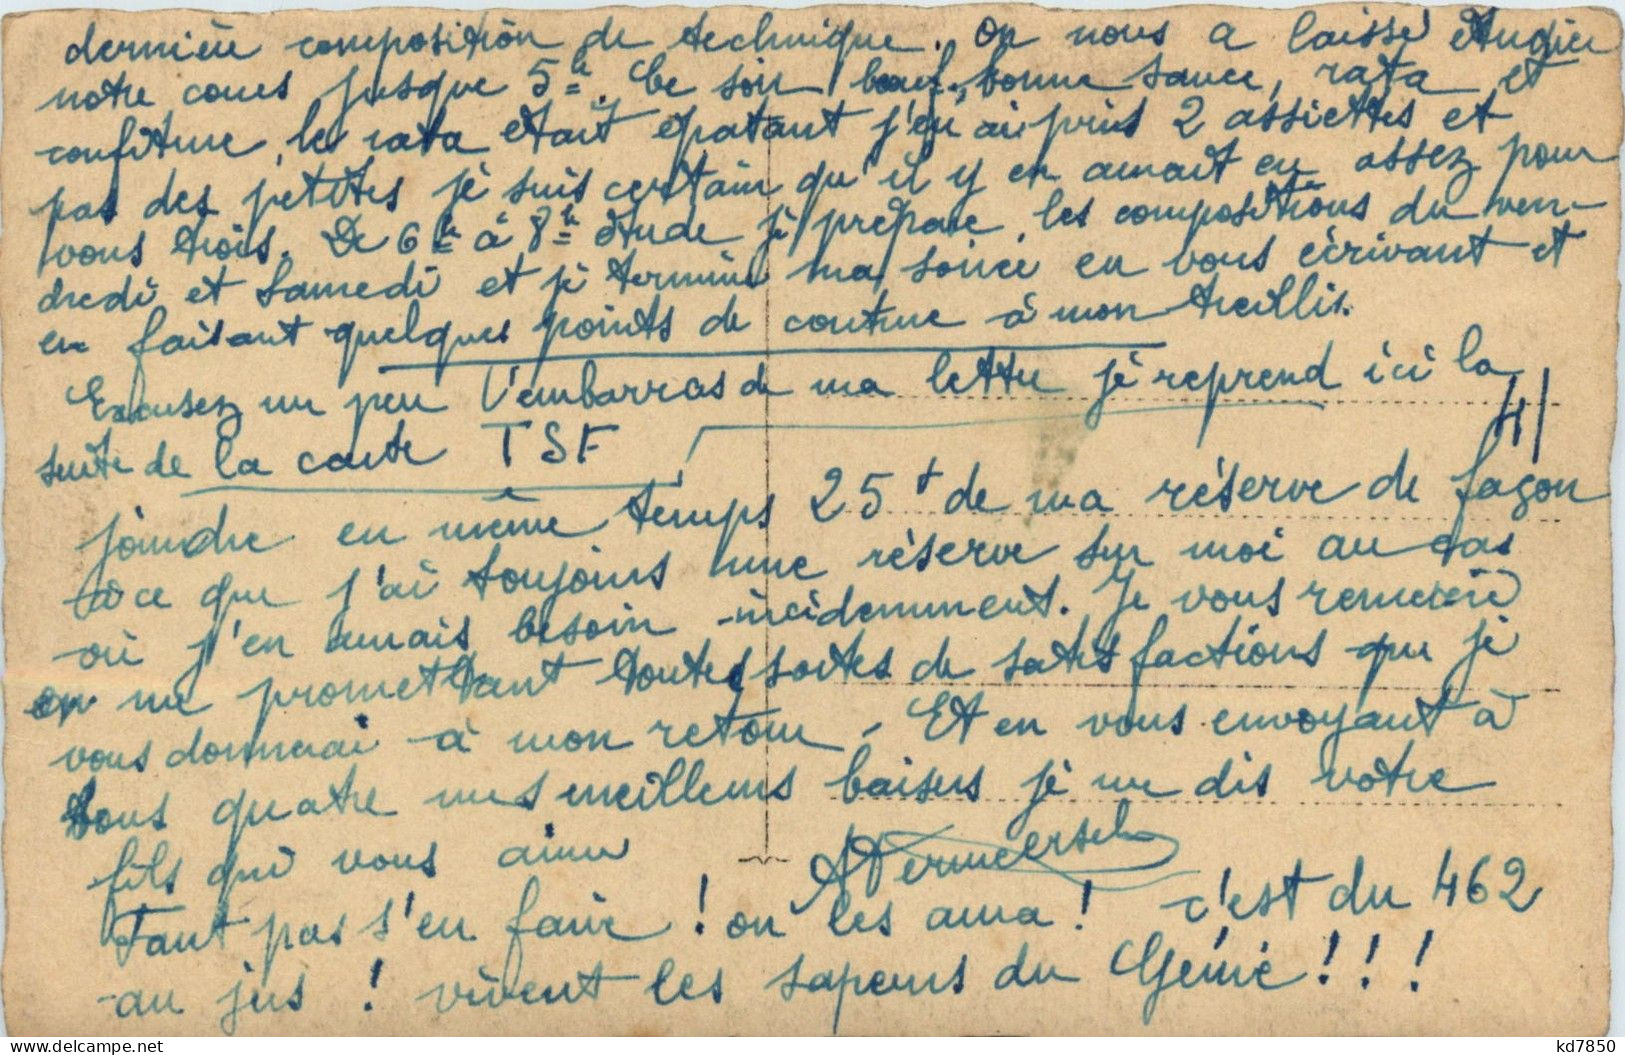 dernière composition de technique. On nous a laissé étudier
notre cours jusque 5h. Ce soir bœuf, bonne sauce, rata et
confiture, le rata était épatant j'en ai pris 2 assiettes et
pas des petites je suis certain qu'il y en aurait eu assez pour
vous trois. De 6h à 8h étude je prépare les compositions du ven-
dredi et samedi et je termine ma soirée en vous écrivant et
en faisant quelques points de couture à mon treillis.
Excusez un peu l'embarras de ma lettre je reprend ici la
suite de la carte TSF
4/
joindre en même temps 25 f de ma réserve de façon
à ce que j'ai toujours une réserve sur moi au cas
où j'en aurais besoin incidemment. Je vous remercie
en me promettant toutes sortes de satisfactions que je
vous donnerai à mon retour. Et en vous envoyant à
tous quatre mes meilleurs baisers je me dis votre
fils qui vous aime
AVermeersch
Faut pas s'en faire ! on les aura ! c'est du 462
au jus ! vivent les sapeurs du Génie !!!
www.delcampe.net
kd7850